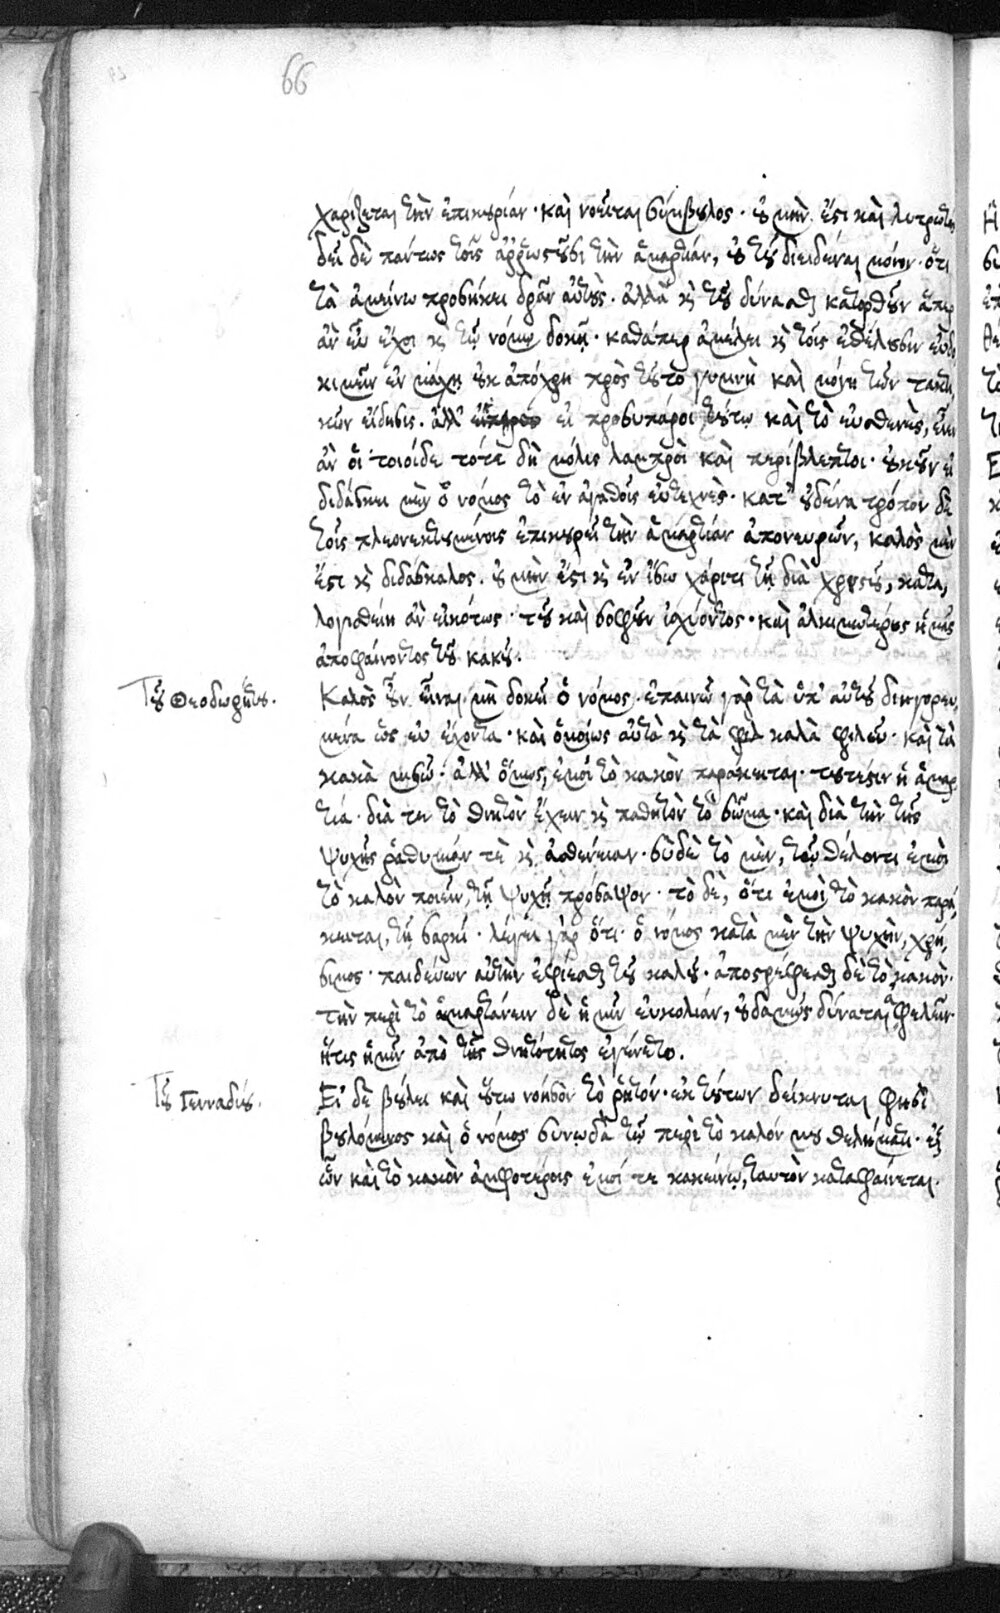 66
χαρίζεται τὴν ἐπικουρίαν· καὶ νοεῖται σύμβουλος· οὐ μὴν ἔστι καὶ λυτρωτής
δεῖ δὲ πάντως τοῖς ἀῤῥωστοῦσι τὴν ἁμαρτίαν, οὐ τοῦ διειδέναι μόνον· ὅτι
τὰ ἀμείνω προσήκει δρᾶν αὐτούς· ἀλλὰ καὶ τοῦ δύνασθαι κατορθοῦν ἅπερ
ἂν εὖ ἔχοι καὶ τῷ νόμῳ δοκῇ· καθάπερ ἀμέλει καὶ τοῖς ἐθέλουσιν εὐδο
κιμεῖν ἐν μάχῃ οὐκ ἀπόχρη πρὸς τοῦτο γυμνὴ καὶ μόνη τῶν τακτι
κῶν εἴδησις· ἀλλ' εἰ προσυπάρχοι τούτῳ καὶ τὸ εὐσθενὲς, εἶεν
ἂν οἱ τοιοίδε τότε δὴ μόλις λαμπροὶ καὶ περίβλεπτοι· οὐκοῦν εἰ
διδάσκει μὲν ὁ νόμος τὸ ἐν ἀγαθοῖς εὐτεχνὲς· κατ' οὐδένα τρόπον δὲ
τοῖς πλεονεκτουμένοις ἐπικουρεῖ τὴν ἁμαρτίαν ἀπονευρῶν, καλὸς μὲν
ἔστι καὶ διδάσκαλος· οὐ μὴν ἔτι καὶ ἐν ἴσῳ χάριτι τῇ διὰ χριστοῦ, κατα,
λογισθείη ἂν εἰκότως· τοῦ καὶ σοφοῦν ἰσχύοντος· καὶ ἀλκιμωτέρους ἡμᾶς
ἀποφαίνοντος τοῦ κακοῦ.
Τοῦ Θεοδωρήτου.
Καλὸς οὖν εἶναι μοι δοκεῖ ὁ νόμος· ἐπαινῶ γὰρ τὰ ὑπ' αὐτοῦ διηγορευ
μένα ὡς εὖ ἔχοντα· καὶ ὁμοίως αὐτὰ καὶ τὰ φιλ καλὰ φιλεῖν· καὶ τὰ
κακὰ μισῶ· ἀλλ' ὅμως, ἐμοὶ τὸ κακὸν παράκειται· τουτέστιν ἡ ἁμαρ
τία· διά τε τὸ θνητὸν ἔχειν καὶ παθητὸν τὸ σῶμα· καὶ διὰ τὴν τῆς
ψυχῆς ῥαθυμίαν τὲ καὶ ἀσθένειαν· σὺ δὲ τὸ μὲν, τῷ θέλοντι ἐμοὶ
τὸ καλὸν ποιεῖν, τῇ ψυχῇ πρόσαψον· τὸ δὲ, ὅτι ἐμοὶ τὸ κακὸν παρά,
κειται, τῇ σαρκί· λέγει γὰρ ὅτι ὁ νόμος κατὰ μὲν τὴν ψυχὴν, χρή,
σιμος· παιδεύων αὐτὴν ἐφίεσθαι τοῦ καλοῦ· ἀποστρέφεσθαι δὲ τὸ κακόν·
τὴν περὶ τὸ ἁμαρτάνειν δὲ ἡμῶν εὐκολίαν, οὐδαμῶς δύναται ὠφελεῖν·
ἥτις ἡμῖν ἀπὸ τῆς θνητότητος ἐγένετο.
Τοῦ Γενναδίου.
Εἰ δὲ βούλει καὶ οὕτω νόησον τὸ ῥητόν· ἐκ τούτων δείκνυται φησὶ
βουλόμενος καὶ ὁ νόμος συνῳδὰ τῷ περὶ τὸ καλόν μου θελήματι· ἐξ
ὧν καὶ τὸ κακὸν ἀμφοτέροις ἐμοί τε κἀκείνῳ, ταυτὸν καταφαίνεται.